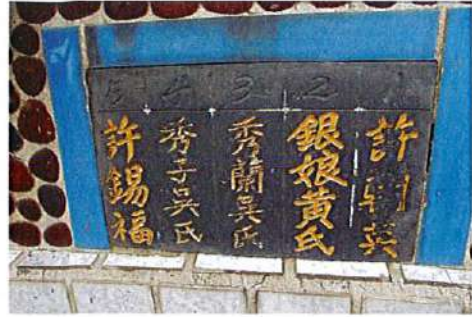 5 4 3 2
許
銀娘黃氏
秀蘭吳氏
秀子吳氏
許錫福